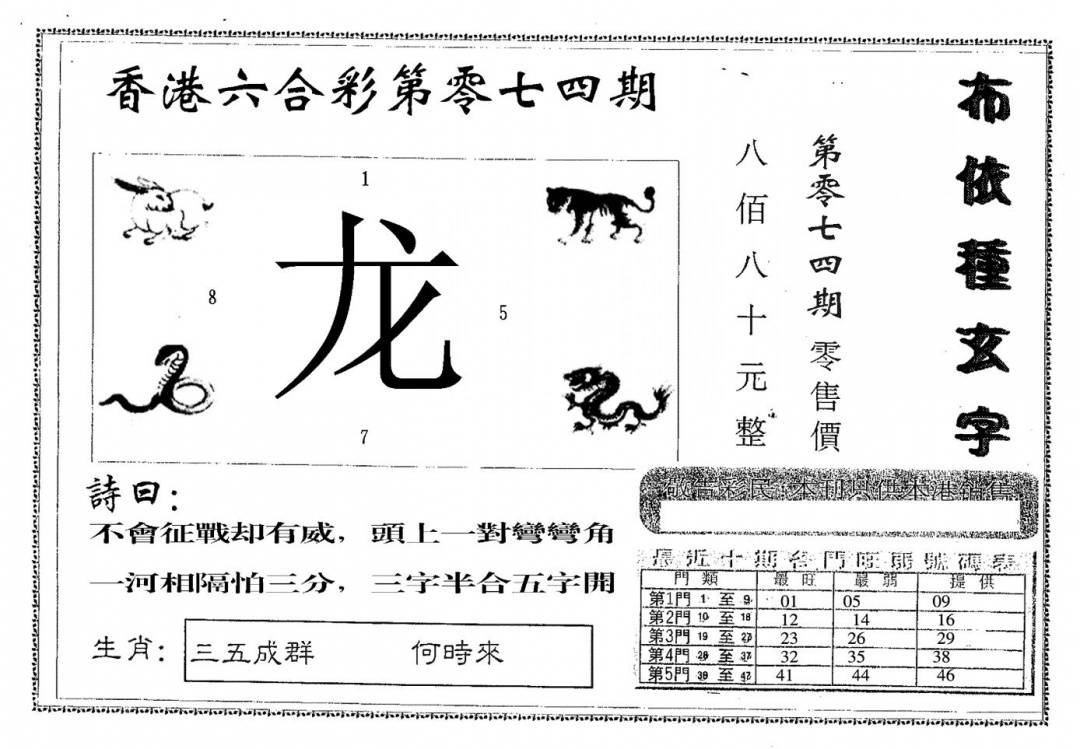 香港六合彩第零七四期
布依種玄字
第零七四期零售價
八佰八十元整
1
龙
8
5
7
詩曰：
不會征戰却有威，頭上一對彎彎角
一河相隔怕三分，三字半合五字開
生肖： 三五成群 何時來
敬告彩民：本刊只供本港銷售
最近十期各門旺弱號碼表
門類 最旺 最弱 提供
第1門 1 至 9 01 05 09
第2門 10 至 18 12 14 16
第3門 19 至 27 23 26 29
第4門 28 至 37 32 35 38
第5門 38 至 47 41 44 46